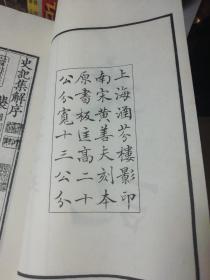 上海涵芬樓影印
南宋黃善夫刻本
原書板匡高二十
公分寬十三公分
史記集解序